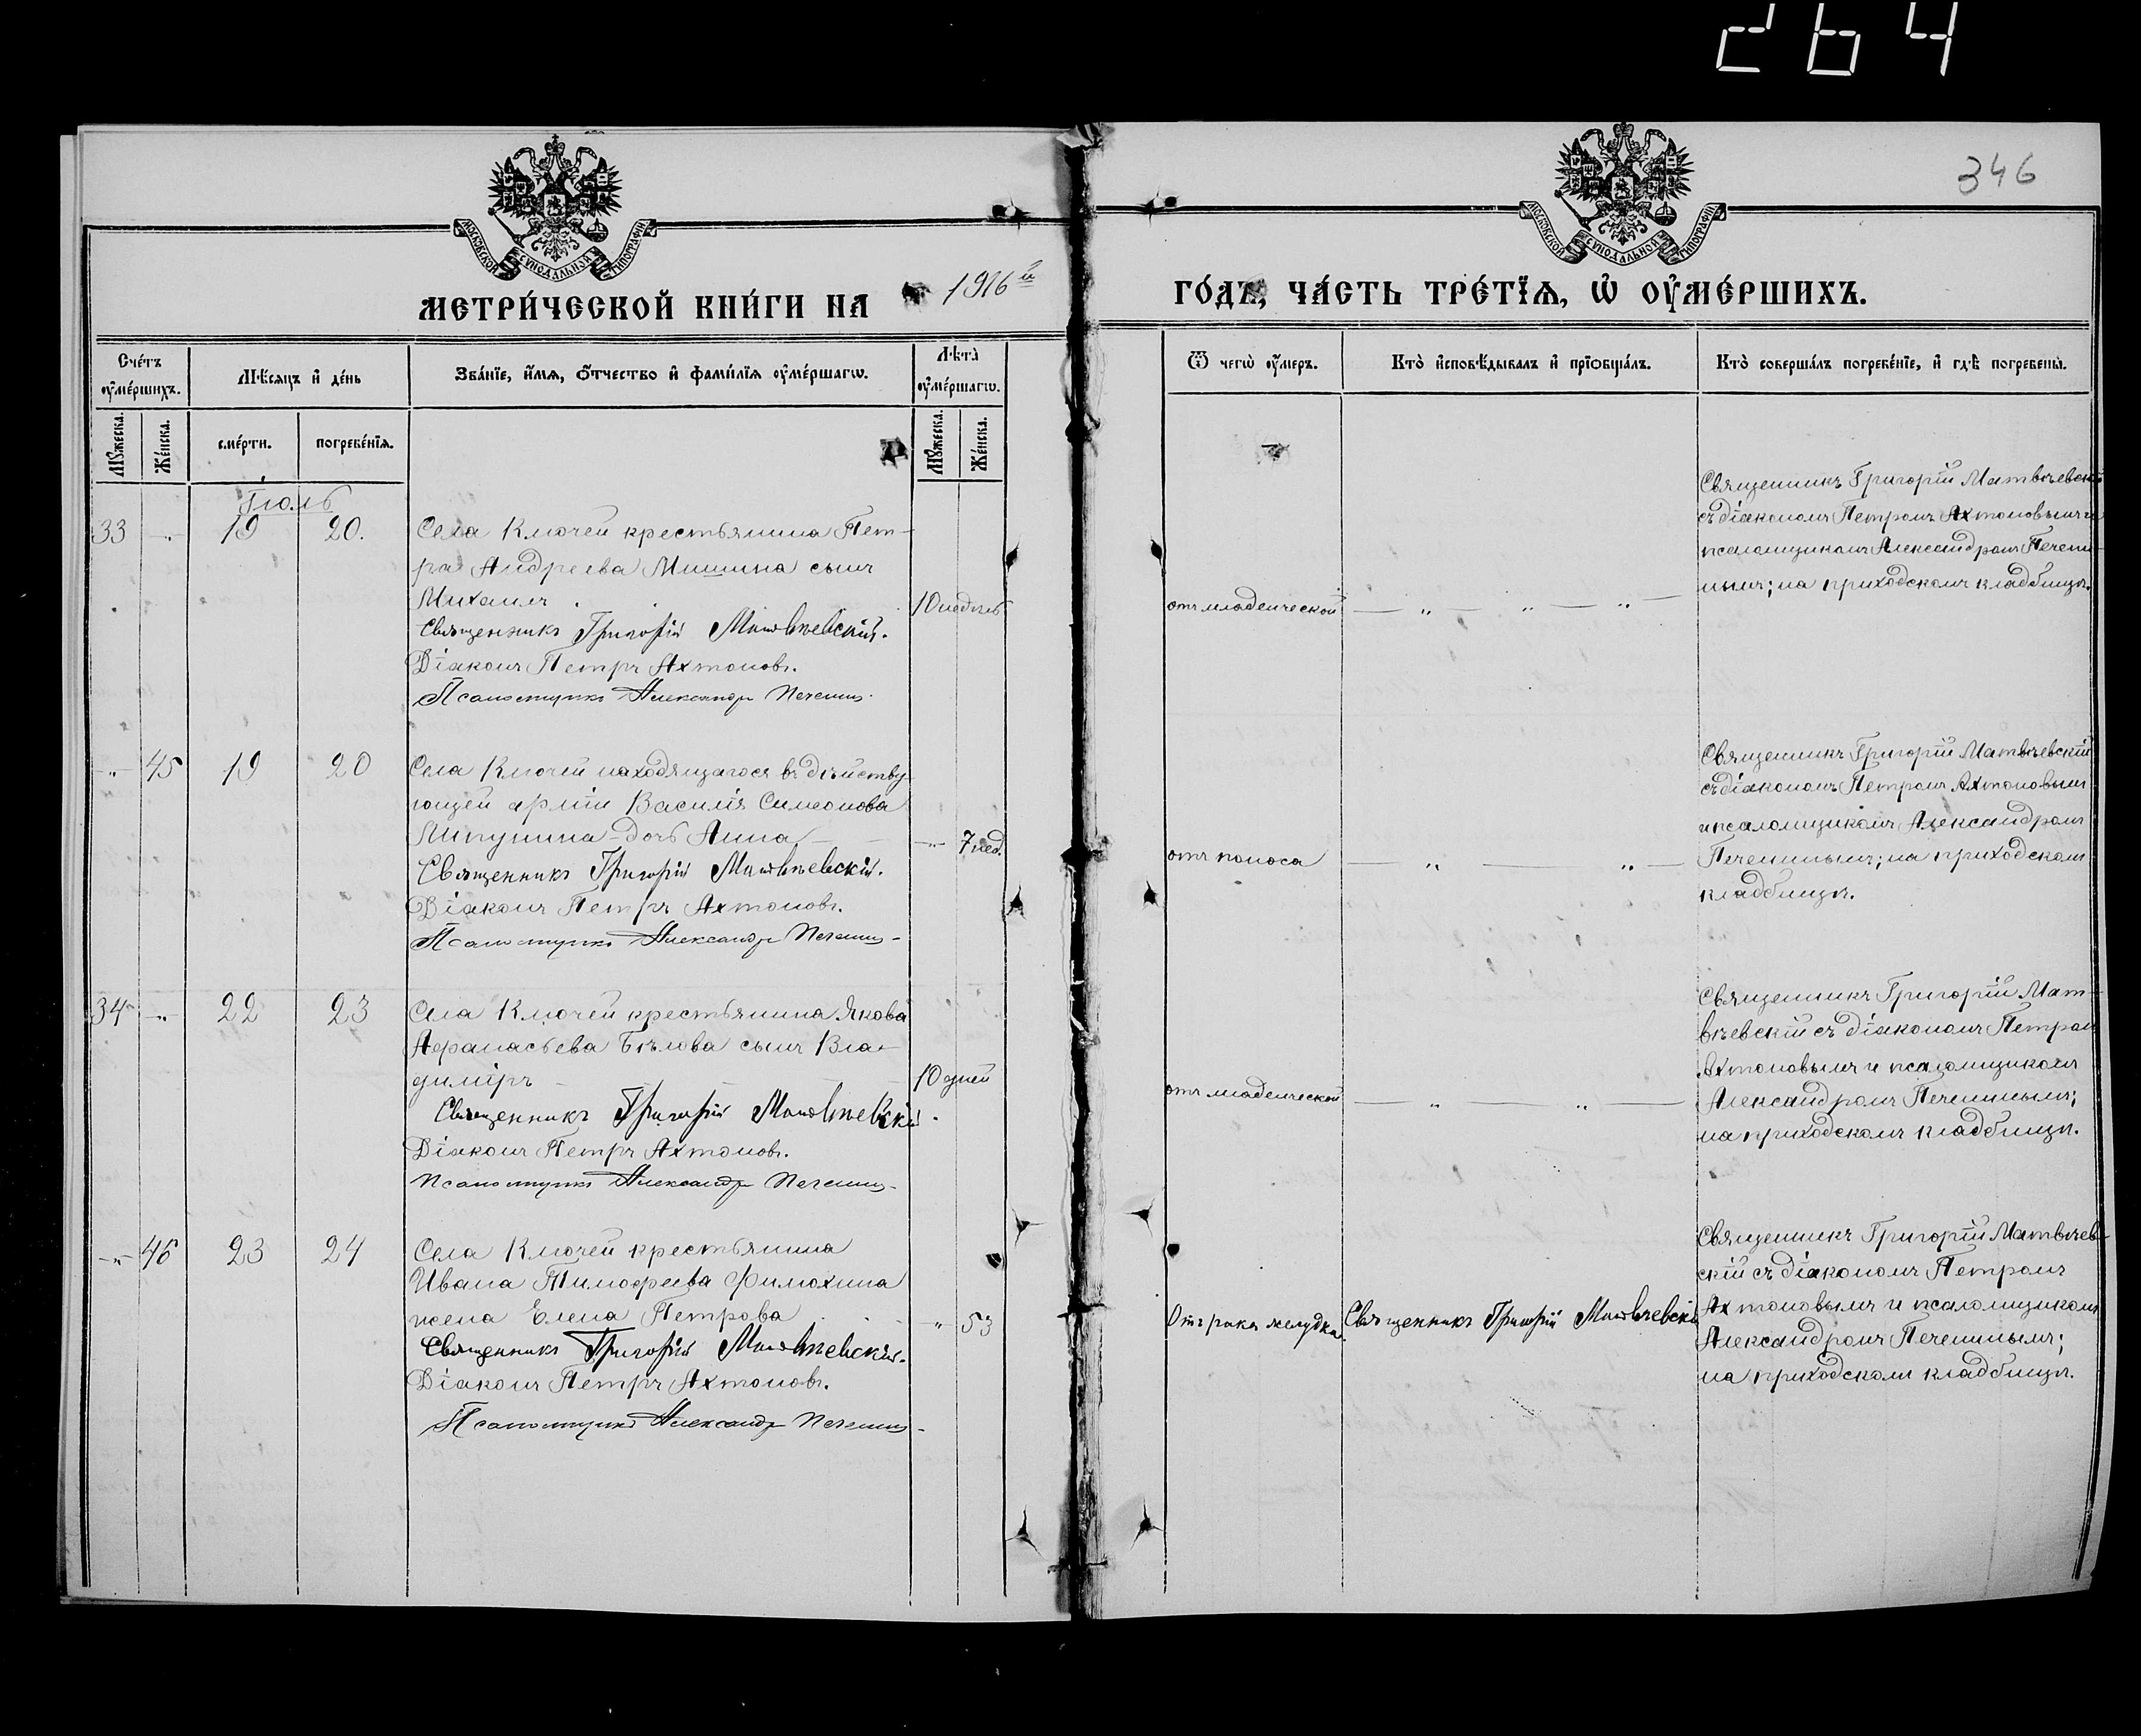 264
346
МОСКОВСКОЙ СУНОДАЛЬНОЙ ТИПОГРАФІИ
МОСКОВСКОЙ СУНОДАЛЬНОЙ ТИПОГРАФІИ
МЕТРИ́ЧЕСКОЙ КНИ́ГИ НА 1916й ГО́ДЪ, ЧА́СТЬ ТРЕ́ТЇѦ, Ѡ҆ ОУ҆МЕ́РШИХЪ.
Сче́тъ оу҆ме́ршихъ.
Мꙋ́жеска.
Же́нска.
Мѣ́сѧцъ и҆ де́нь
сме́рти.
погребе́нїѧ.
Зва́нїе, и҆́мѧ, ѻ҆́тчество и҆ фами́лїѧ оу҆ме́ршагѡ.
Лѣ́та оу҆ме́ршагѡ.
Мꙋ́жеска.
Же́нска.
Ѿ чегѡ̀ оу҆́меръ.
Кто̀ и҆сповѣ́дывалъ и҆ прїѡбща́лъ.
Кто̀ соверша́лъ погребе́нїе, и҆ гдѣ̀ погребены̀.
Іюль
33 -"- 19 20.
Села Ключей крестьянина Пет-
ра Андреева Мишина сынъ
Михаилъ
Священникъ Григорій Матвѣевскій.
Діаконъ Петръ Ахтоновъ.
Псаломщикъ Александръ Печенин
10 недѣль
отъ младенческой
— " — " — " —
Священникъ Григорій Матвѣевскій
съ діакономъ Петромъ Ахтоновымъ и
псаломщикомъ Александромъ Печени-
нымъ; на приходскомъ кладбищѣ.
-"- 45 19 20
Села Ключей находящагося въ дѣйству
ющей арміи Василія Симеонова
Липунина дочь Анна
Священникъ Григорій Матвѣевскій.
Діаконъ Петръ Ахтоновъ.
Псаломщикъ Александръ Печенин
-"- 7 нед.
отъ поноса
— " — " —
Священникъ Григорій Матвѣевскій
съ діакономъ Петромъ Ахтоновымъ
и псаломщикомъ Александромъ
Печенинымъ; на приходскомъ
кладбищѣ.
34 -"- 22 23
Села Ключей крестьянина Якова
Аѳанасьева Бѣлова сынъ Вла-
димiръ
Священникъ Григорій Матвѣевскій.
Діаконъ Петръ Ахтоновъ.
Псаломщикъ Александръ Печенин
10 дней
отъ младенческой
— " — " —
Священникъ Григорій Мат-
вѣевскій съ діакономъ Петромъ
Ахтоновымъ и псаломщикомъ
Александромъ Печенинымъ;
на приходскомъ кладбищѣ.
-"- 46 23 24
Села Ключей крестьянина
Ивана Тимоѳеева Филюхина
жена Елена Петрова
Священникъ Григорій Матвѣевскій.
Діаконъ Петръ Ахтоновъ.
Псаломщикъ Александръ Печенин
-"- 53
Отъ рака желудка.
Священникъ Григорій Матвѣевскій
Священникъ Григорій Матвѣев-
скій съ діакономъ Петромъ
Ахтоновымъ и псаломщикомъ
Александромъ Печенинымъ;
на приходскомъ кладбищѣ.